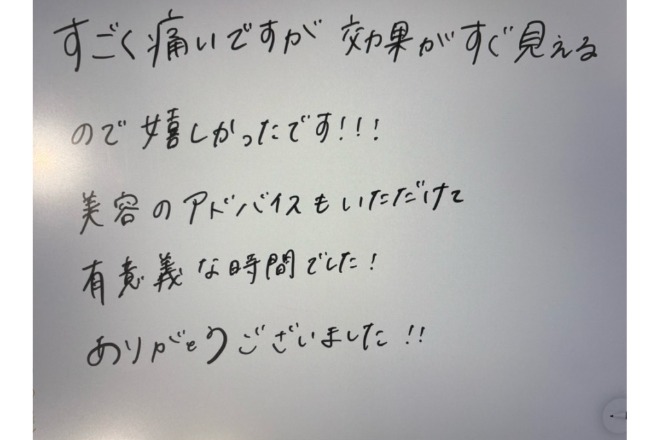 すごく痛いですが 効果がすぐ見える
ので嬉しかったです!!!
美容のアドバイスもいただけて
有意義な時間でした!
ありがとうございました!!